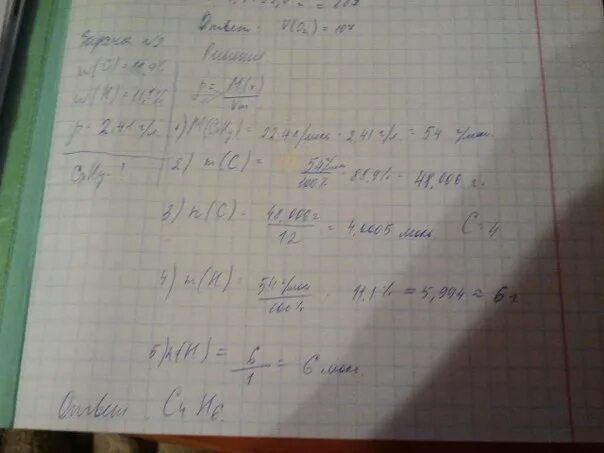 Ответ: V(O₂) = 10л
Задача №3
Решение
ρ = M(x) / Vm
ρ = 2,41 г/л
CxHy - ?
1) M(CxHy) = 22.4 л/моль · 2,41 г/л = 54 г/моль
2) m(C) = 54 г/моль / 100% · 88,9% = 48,006 г.
3) n(C) = 48,006 г / 12 = 4,0005 моль C = 4
4) m(H) = 54 г/моль / 100% · 11,1% = 5,994 ≈ 6 г
5) n(H) = 6 / 1 = 6 моль.
Ответ C₄H₆.